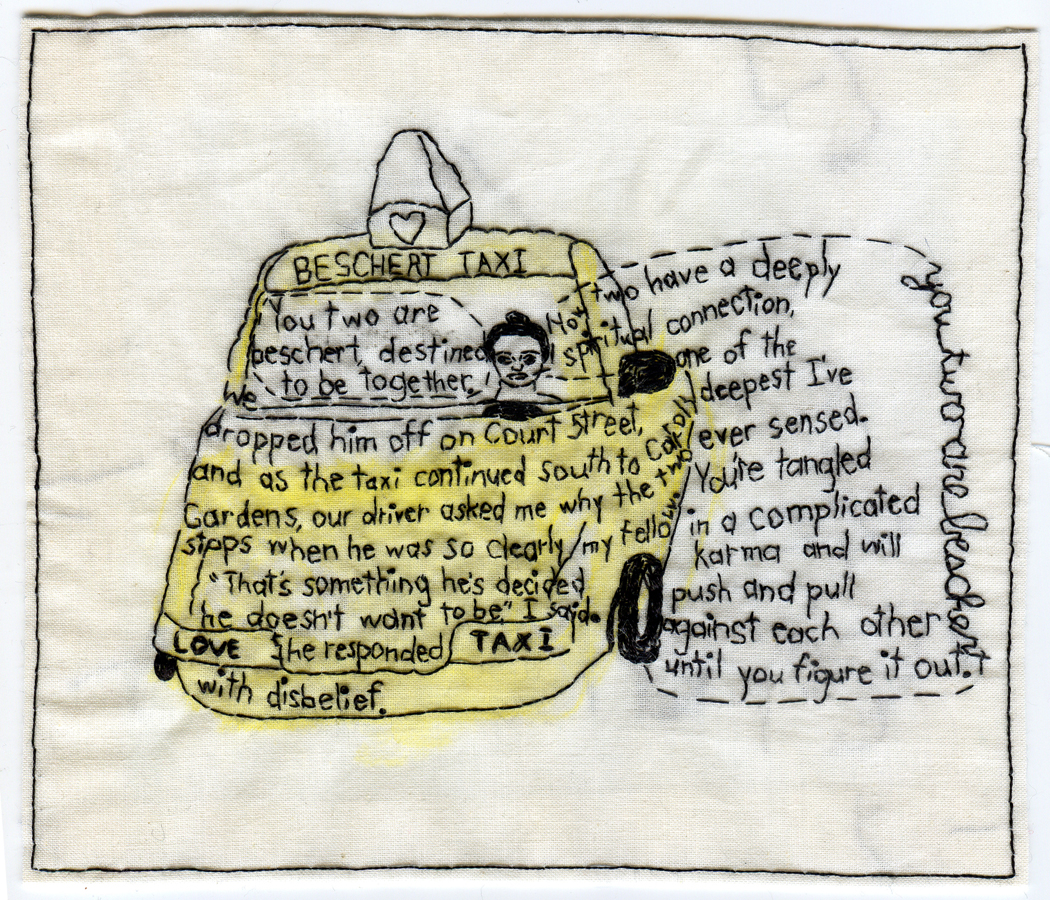 BESCHERT TAXI
You two are
beschert, destined
to be together.
We
dropped him off on Court Street,
and as the taxi continued south to Carroll
Gardens, our driver asked me why the two
stops when he was so clearly my fellow.
"That's something he's decided
he doesn't want to be." I said.
LOVE She responded TAXI
with disbelief.
two have a deeply
spiritual connection,
one of the
deepest I've
ever sensed.
You're tangled
in a complicated
karma and will
push and pull
against each other
until you figure it out.
you two are beschert